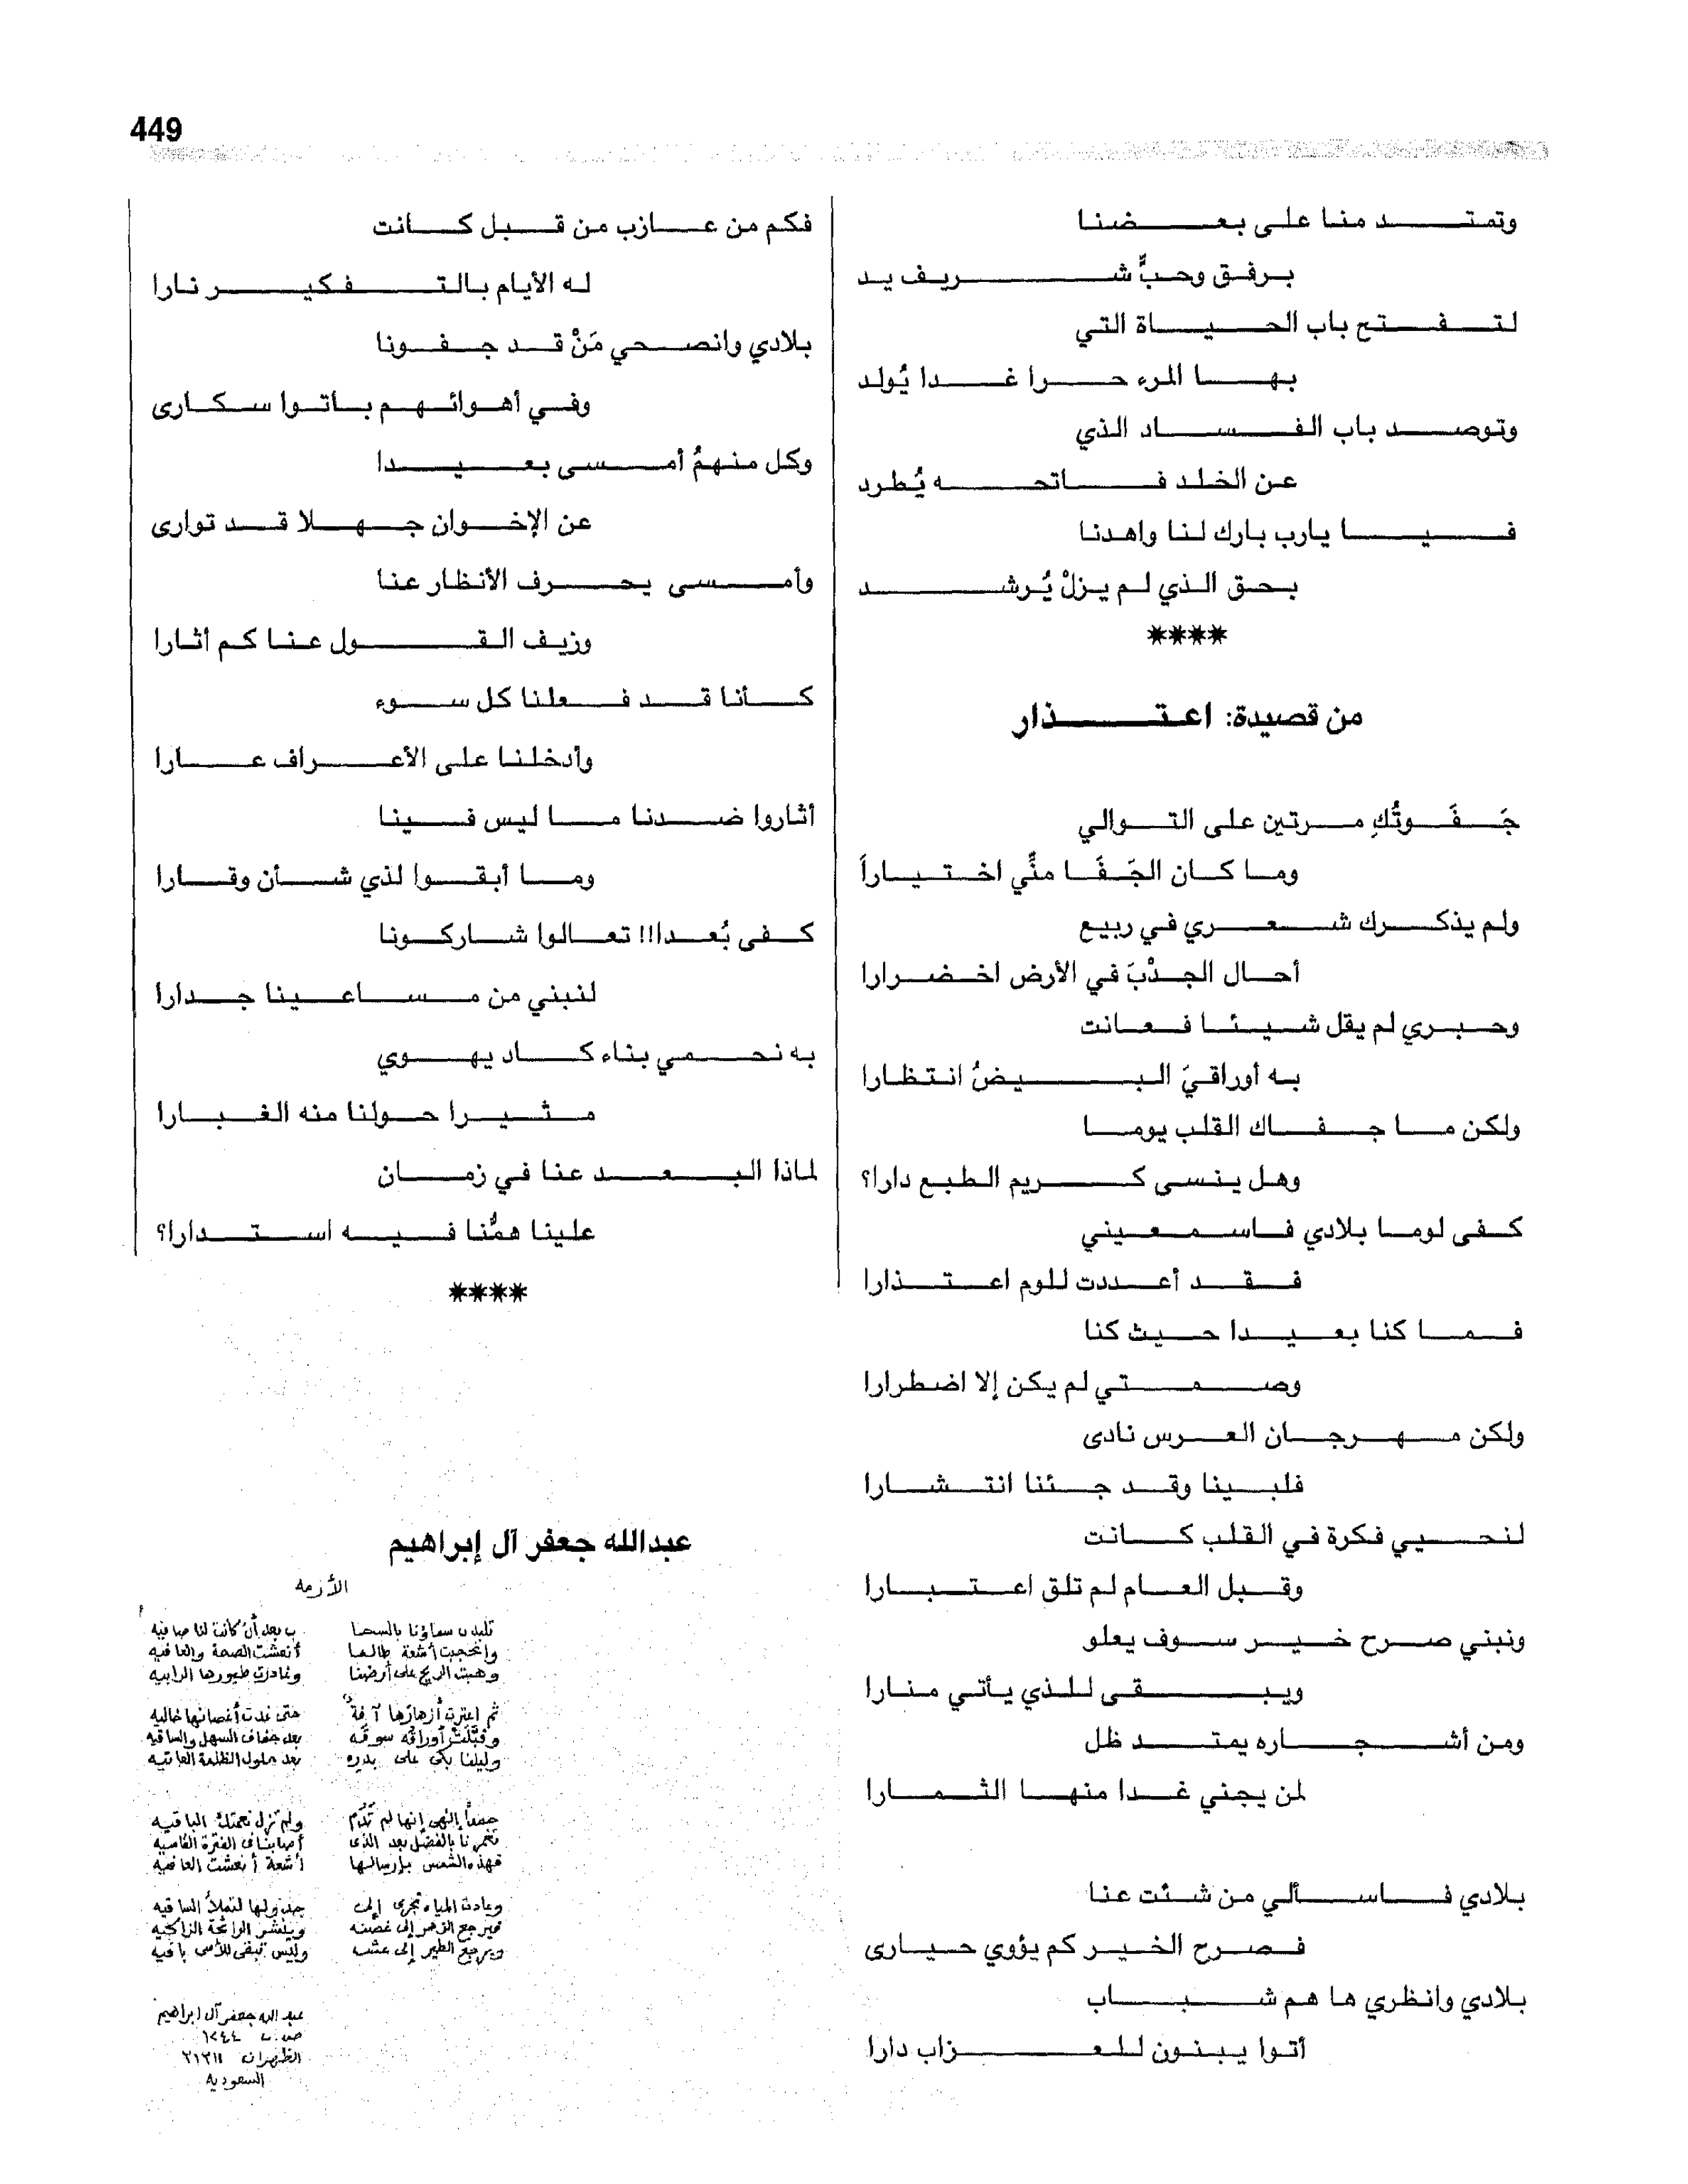 449
وتمتد منا على بعضنا
برفق وحبٍّ شريف يد
لتفتح باب الحياة التي
بها المرء حرا غدا يُولد
وتوصد باب الفساد الذي
عن الخلد فاتحه يُطرد
فيا يارب بارك لنا واهدنا
بحق الذي لم يزلْ يُرشد
****
من قصيدة: اعتذار
جَفَوتُكِ مرتين على التوالي
وما كان الجَفَا منِّي اختياراً
ولم يذكرك شعري في ربيع
أحال الجدْبَ في الأرض اخضرارا
وحبري لم يقل شيئا فعانت
به أوراقيَ البيضُ انتظارا
ولكن ما جفاك القلب يوما
وهل ينسى كريم الطبع دارا؟
كفى لوما بلادي فاسمعيني
فقد أعددت للوم اعتذارا
فما كنا بعيدا حيث كنا
وصمتي لم يكن إلا اضطرارا
ولكن مهرجان العرس نادى
فلبينا وقد جئنا انتشارا
لنحيي فكرة في القلب كانت
وقبل العام لم تلق اعتبارا
ونبني صرح خير سوف يعلو
ويبقى للذي يأتي منارا
ومن أشجاره يمتد ظل
لمن يجني غدا منها الثمارا
بلادي فاسألي من شئت عنا
فصرح الخير كم يؤوي حيارى
بلادي وانظري ها هم شباب
أتوا يبنون للعزاب دارا
فكم من عازب من قبل كانت
له الأيام بالتفكير نارا
بلادي وانصحي مَنْ قد جفونا
وفي أهوائهم باتوا سكارى
وكل منهمُ أمسى بعيدا
عن الإخوان جهلا قد توارى
وأمسى يحرف الأنظار عنا
وزيف القول عنا كم أثارا
كأنا قد فعلنا كل سوء
وأدخلنا على الأعراف عارا
أثاروا ضدنا ما ليس فينا
وما أبقوا لذي شأن وقارا
كفى بُعدا!!! تعالوا شاركونا
لنبني من مساعينا جدارا
به نحمي بناء كاد يهوي
مثيرا حولنا منه الغبارا
لماذا البعد عنا في زمان
علينا همُّنا فيه استدارا؟
****
عبدالله جعفر آل إبراهيم
الأزمه
تلبدت سماؤنا بالسحا ب بعد أن كانت لنا صافيه
وانحجبت أشعة طالما أنعشت الصحة والعافيه
وهبت الريح على أرضنا وغادرت طيورها الرابيه
ثم اعترت أزهارها آفة حتى غدت أغصانها خاليه
أوراقه سوقه بعد جفاف السهل والساقيه
وليلنا بكى على بدره بعد حلول الظلمة العاتيه
إلهي إنها لم تدم ولم تزل نعمتك الباقيه
تغمرنا بالفضل بعد الذي أصابنا في الفترة القاسيه
فهذه الشمس بإرسالها أشعة أنعشت العافيه
وعادت المياه تجري إلى جدولها لتملأ الساقيه
الزهر إلى غصنه وينشر الرائحة الزاكيه
ويرجع الطير إلى عشه وليس تبقى للأسى باقيه
عبدالله جعفر آل ابراهيم
ص.ب ١٢٤٤
الظهران ٣١٣١١
السعوديه